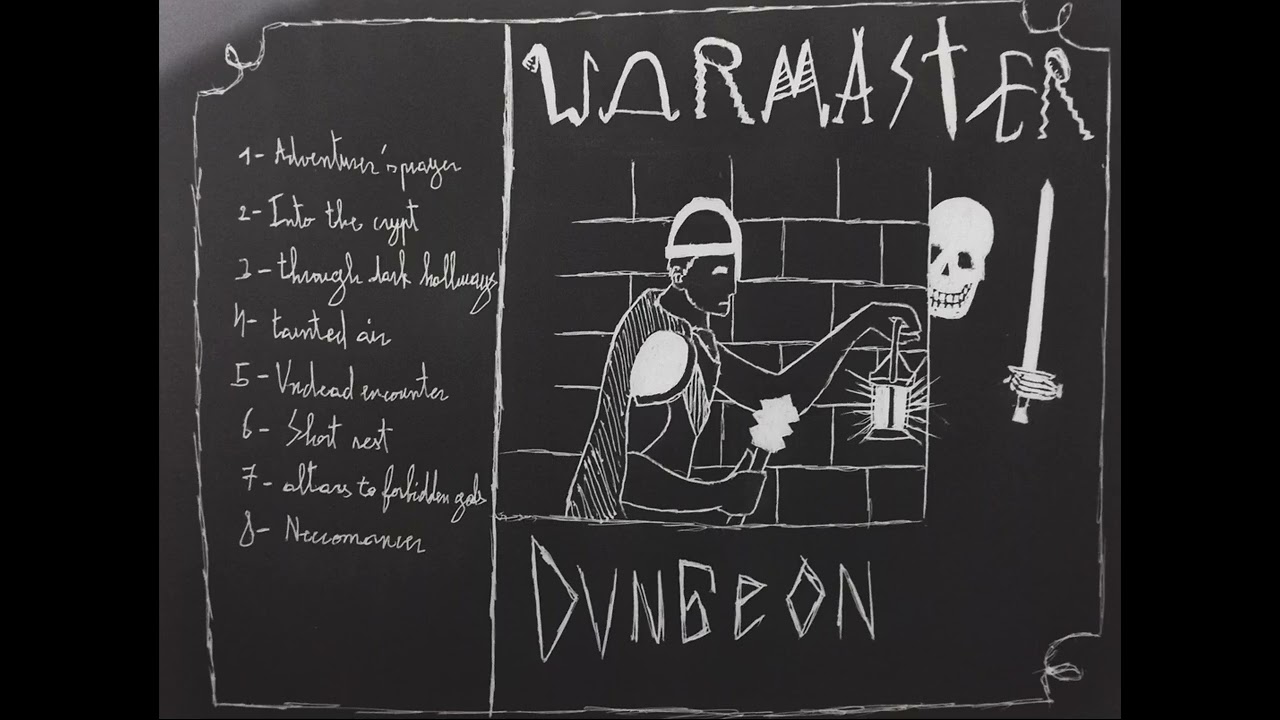 1- Adventurer's prayer
2- Into the crypt
3- through dark hallways
4- tainted air
5- Undead encounter
6- Short rest
7- altars to forbidden gods
8- Necromancer
WARMASTER
DUNGEON